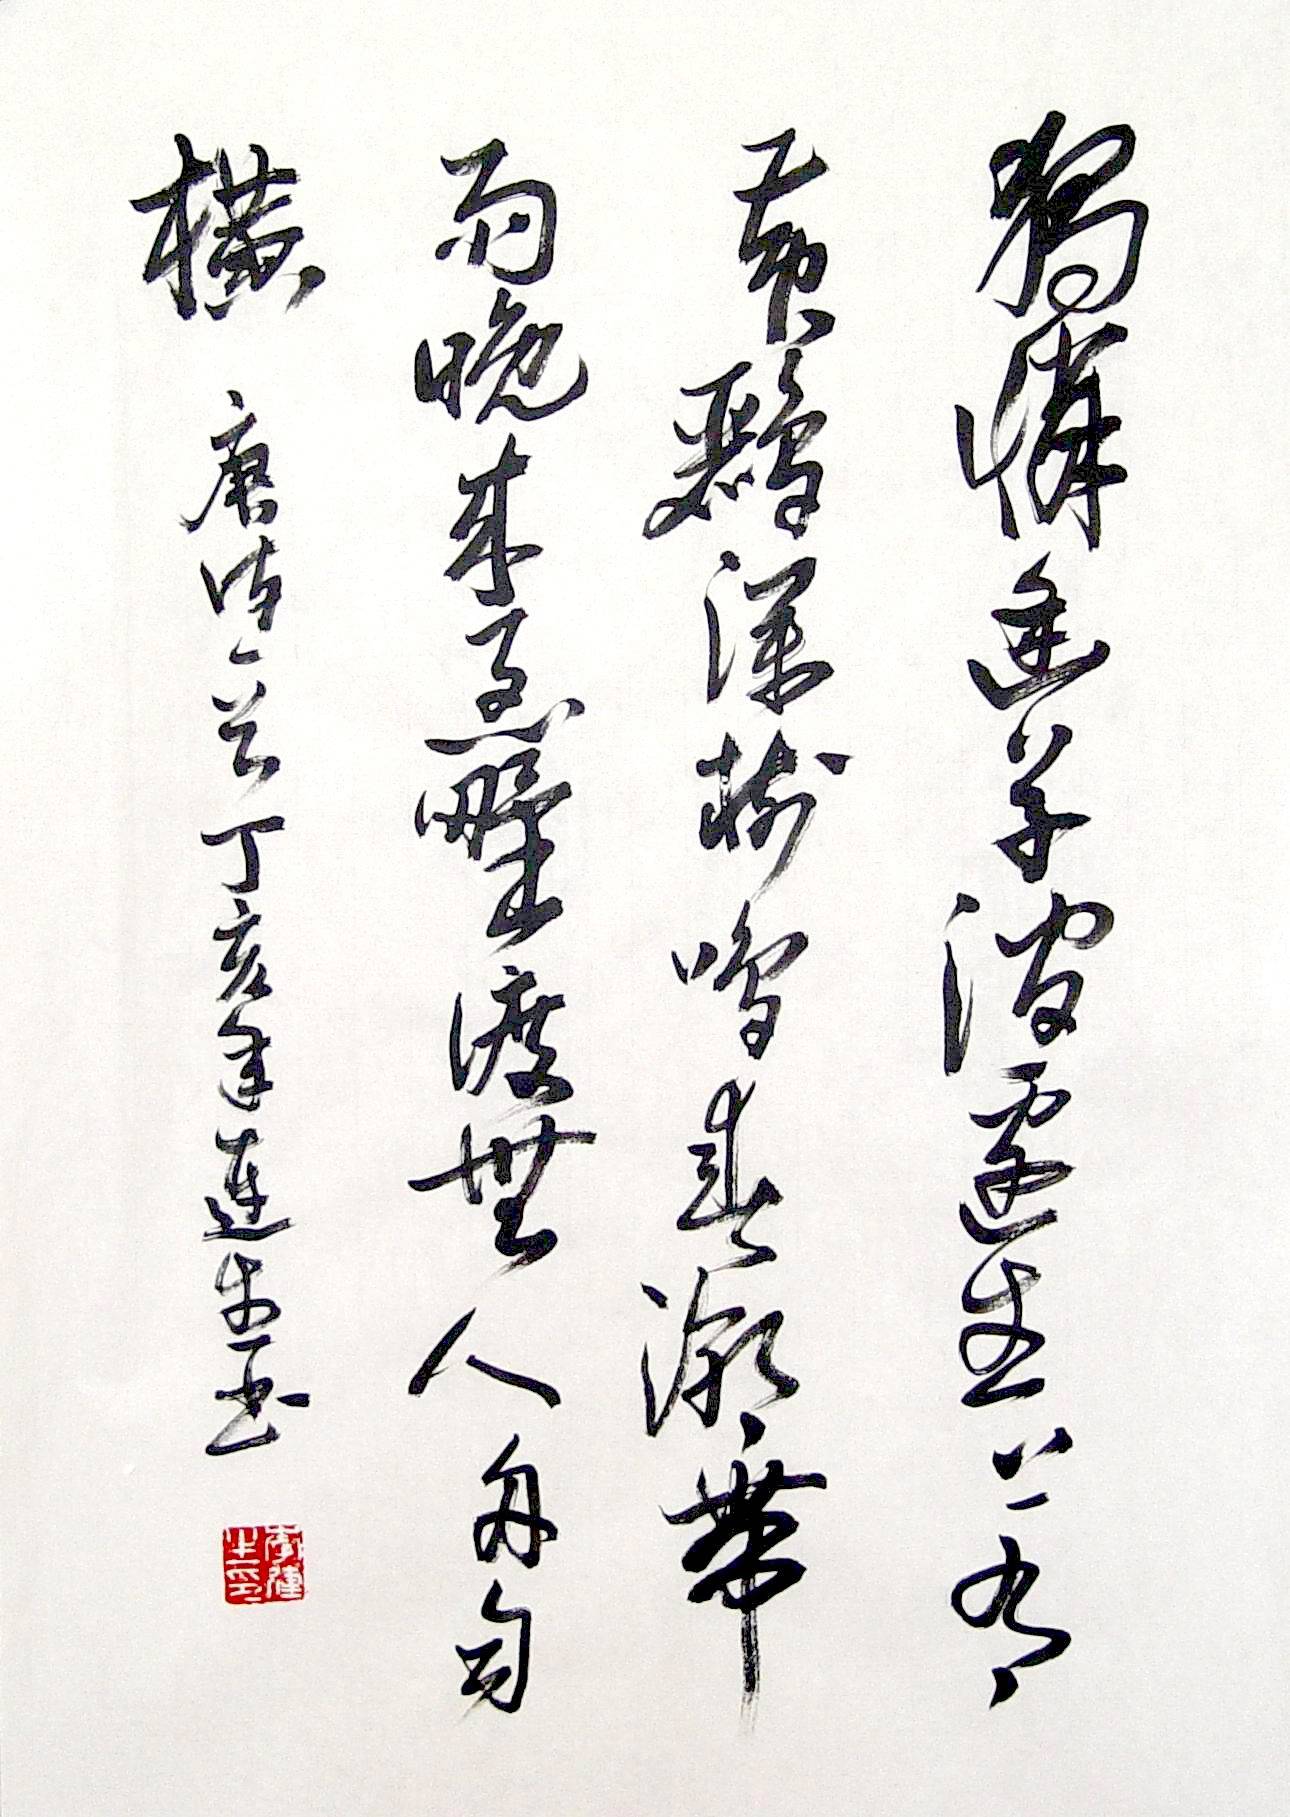 獨憐幽草澗邊生上有
黃鸝深樹鳴春潮帶
雨晚來急野渡無人舟自
橫
唐詩一首丁亥年連生書
李連生印